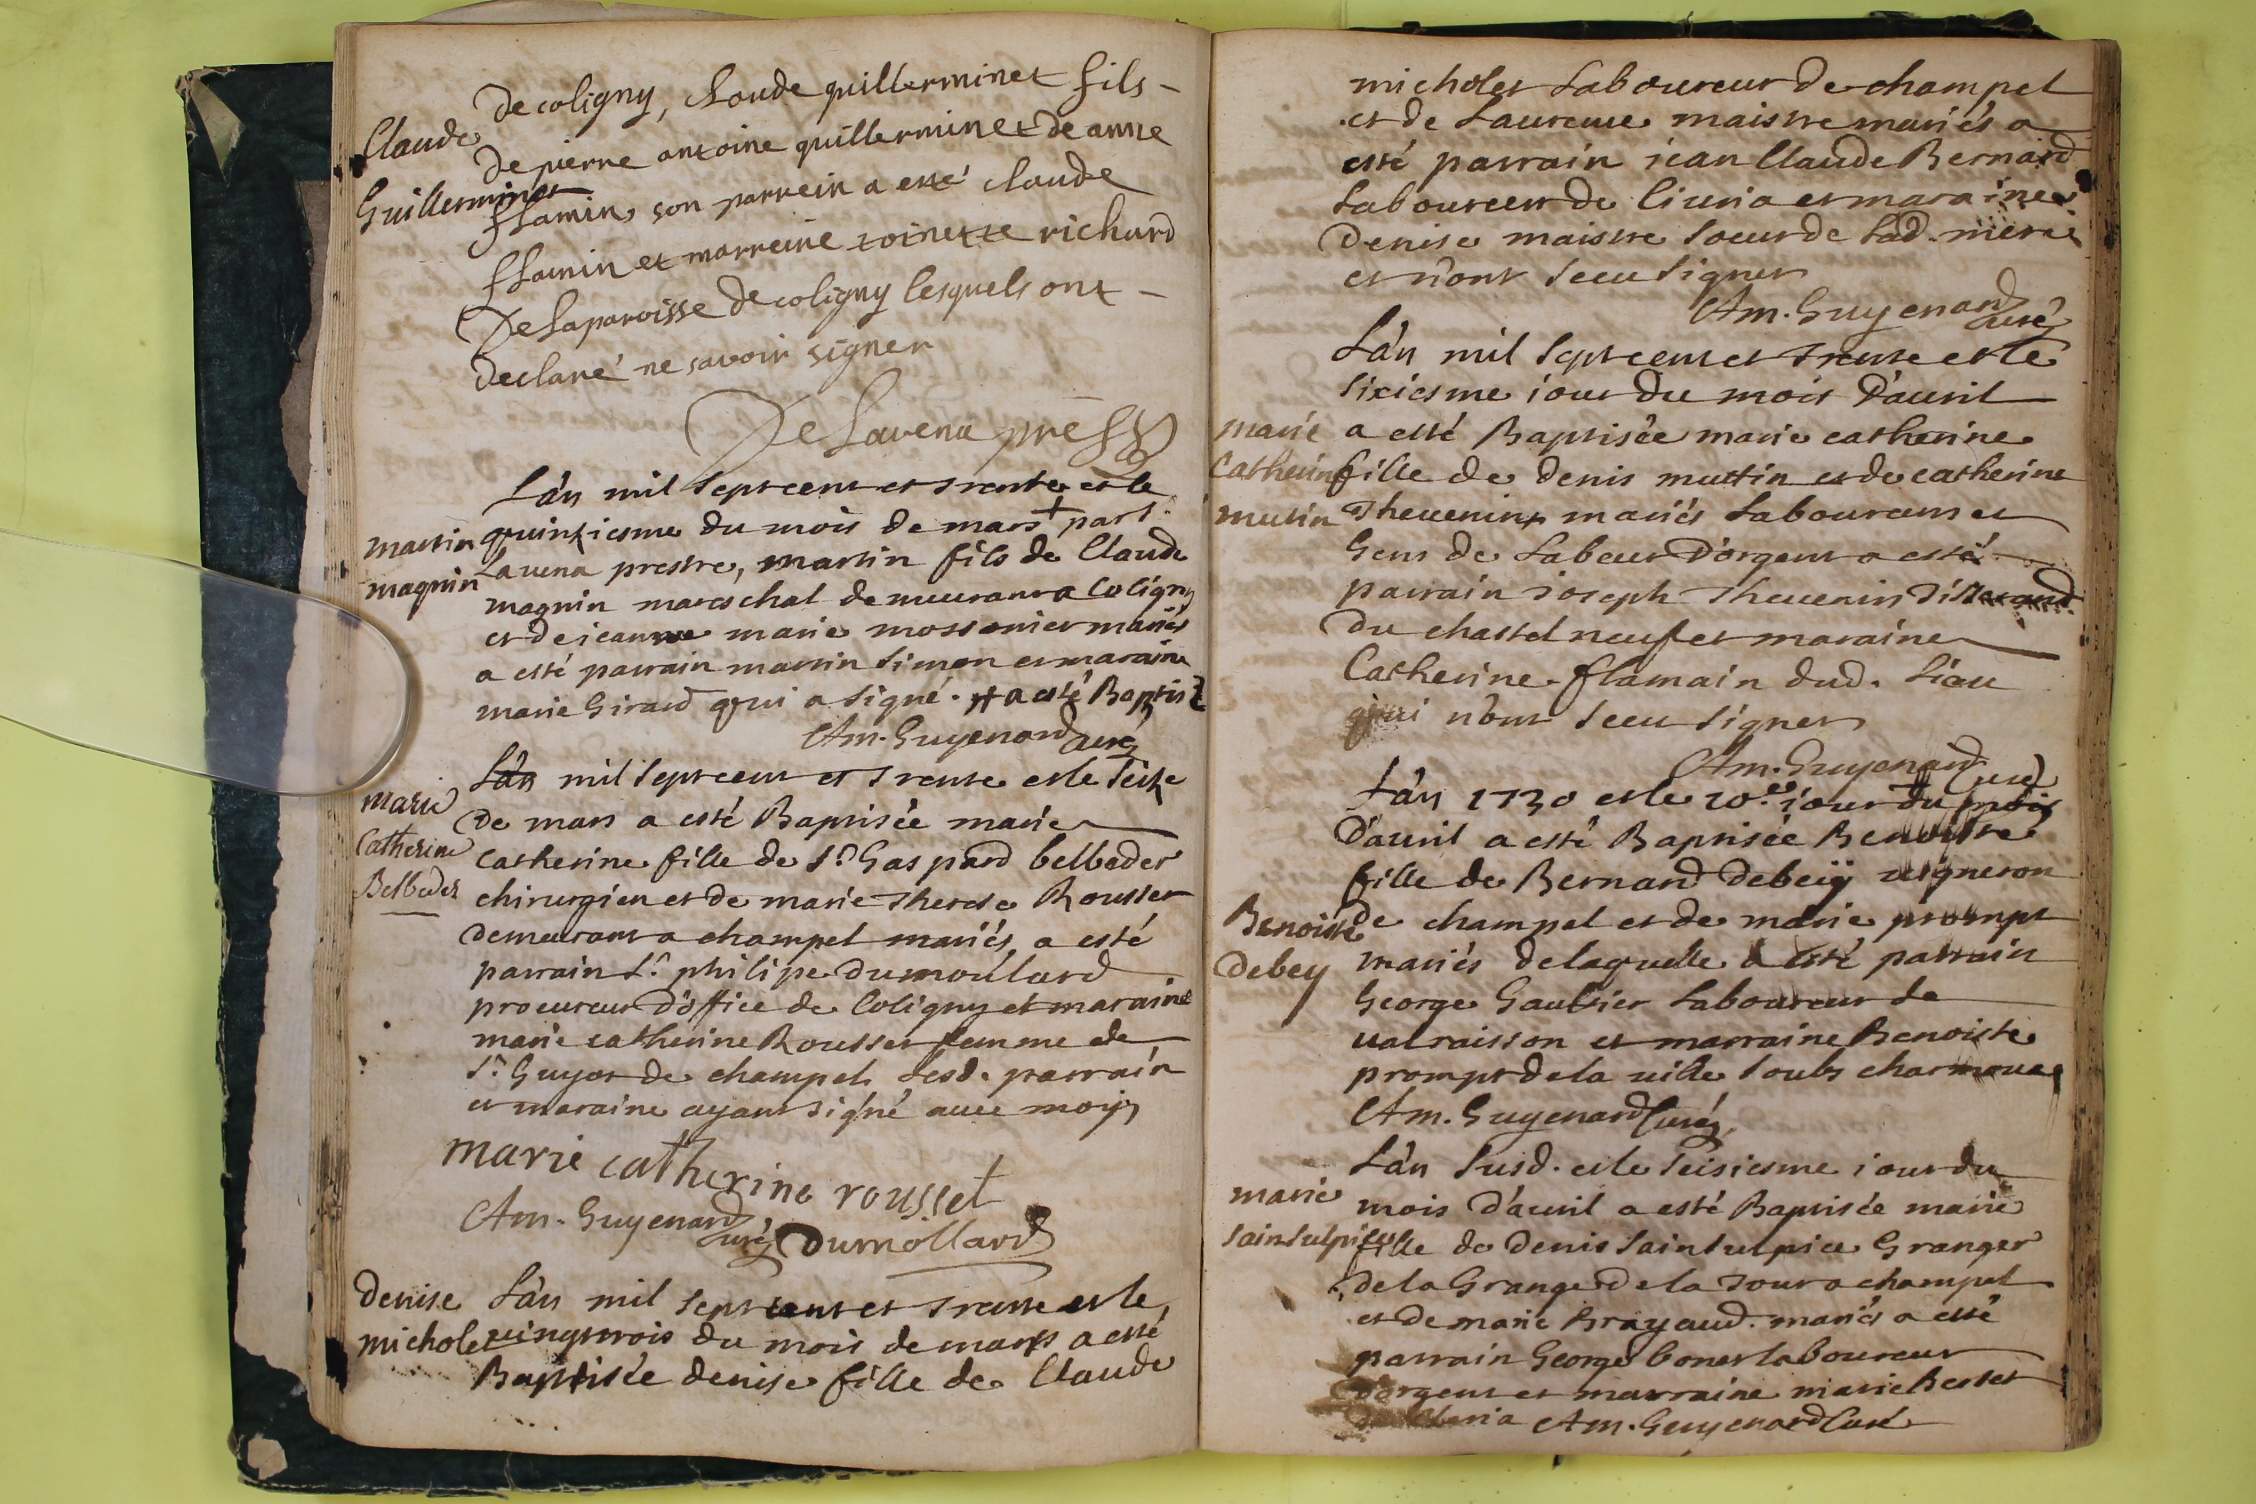 de coligny, claude guillerminet fils -
Claude
de pierre antoine guillerminet de anne
Guillerminet
fflamin, son parrein a esté claude
fflamin et marreine toinette richard
de la paroisse de coligny lesquels ont -
declaré ne savoir signer
De Lavena
L'an mil sept cent et trente et le
martin quinziesme du mois de mars + part.
magnin Lavena prestre, martin fils de Claude
magnin mareschal demeurant a Coligny
et de jeanne marie mossonier mariés
a esté parrain martin Simon et maraine
marie Girard qui a signé. # a esté Baptisé
Am. Guyenard Curé
L'an mil sept cent et trente et le seize
marie
de mars a esté Baptisée marie
Catherine
catherine fille de Sr. Gaspard belbeder
Belbeder
chirurgien et de marie Therese Rousset
demeurant a champel mariés, a esté
parrain Sr. philipe dumoulard
procureur d'office de Coligny et maraine
marie catherine Rousset femme de
Sr. Guyot de champel, lesd. parrain
et maraine ayant signé avec moy
marie catherine rousset
Am. Guyenard
curé Dumollard
denise L'an mil sept cent et trente et le
micholet vingt trois du mois de mars a esté
Baptisée denise fille de Claude
micholet Laboureur de champel
et de Laurence maistre mariés a
esté parrain jean Claude Bernard
Laboureur de liuria et maraine
Denise maistre soeur de Lad. mere
et n'ont sceu signer
Am. Guyenard
curé
L'an mil sept cent et trente et le
sixiesme jour du mois d'auril
marie a esté Baptisée marie catherine
Catherine fille de denis muttin et de catherine
mutin Theuenin mariés Laboureurs et
Gens de Labeur d'orgent a esté
parrain Joseph Theuenin Tisserand
du chastel neuf et maraine
Catherine flamain dud. Lieu
qui n'ont sceu signer
Am. Guyenard Curé
L'an 1730 et le 10e jour du mois
d'auril a esté Baptisée Benoiste
fille de Bernard Debeÿ uigneron
Benoiste de champel et de marie prompt
Debey mariés de laquelle a esté parrain
George Gautier Laboureur de
ualraisson et marraine Benoiste
prompt de la uille soubs charmoux
Am. Guyenard Curé
L'an susd. et le seisiesme jour du
marie mois d'auril a esté Baptisée marie
saintsulpice fille de denis Saintsulpice Granger
de la Grange de la Tour a champel
et de marie Brayaud. mariés a esté
parrain George bonet laboureur
d'orgent et marraine marie Bertet
Am. Guyenard Curé